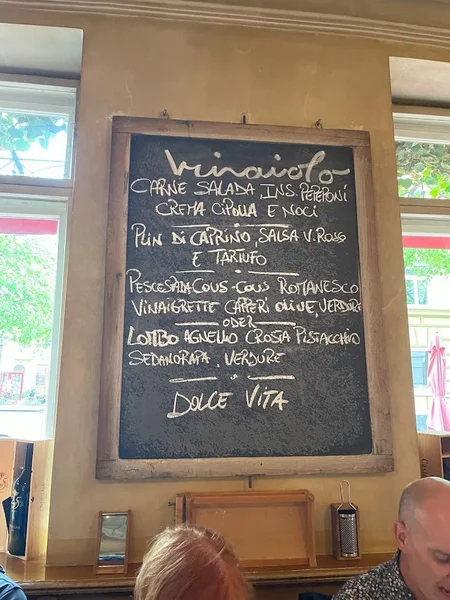 Vinaiolo
CARNE SALADA INS. PEPERONI
CREMA CIPOLLA E NOCI
PLIN DI CAPRINO, SALSA V. ROSSO
E TARTUFO
PESCESPADA COUS-COUS ROMANESCO
VINAIGRETTE CAPPERI OLIVE, VERDURE
ODER
LOMBO AGNELLO CROSTA PISTACCHIO
SEDANORAPA, VERDURE
DOLCE VITA